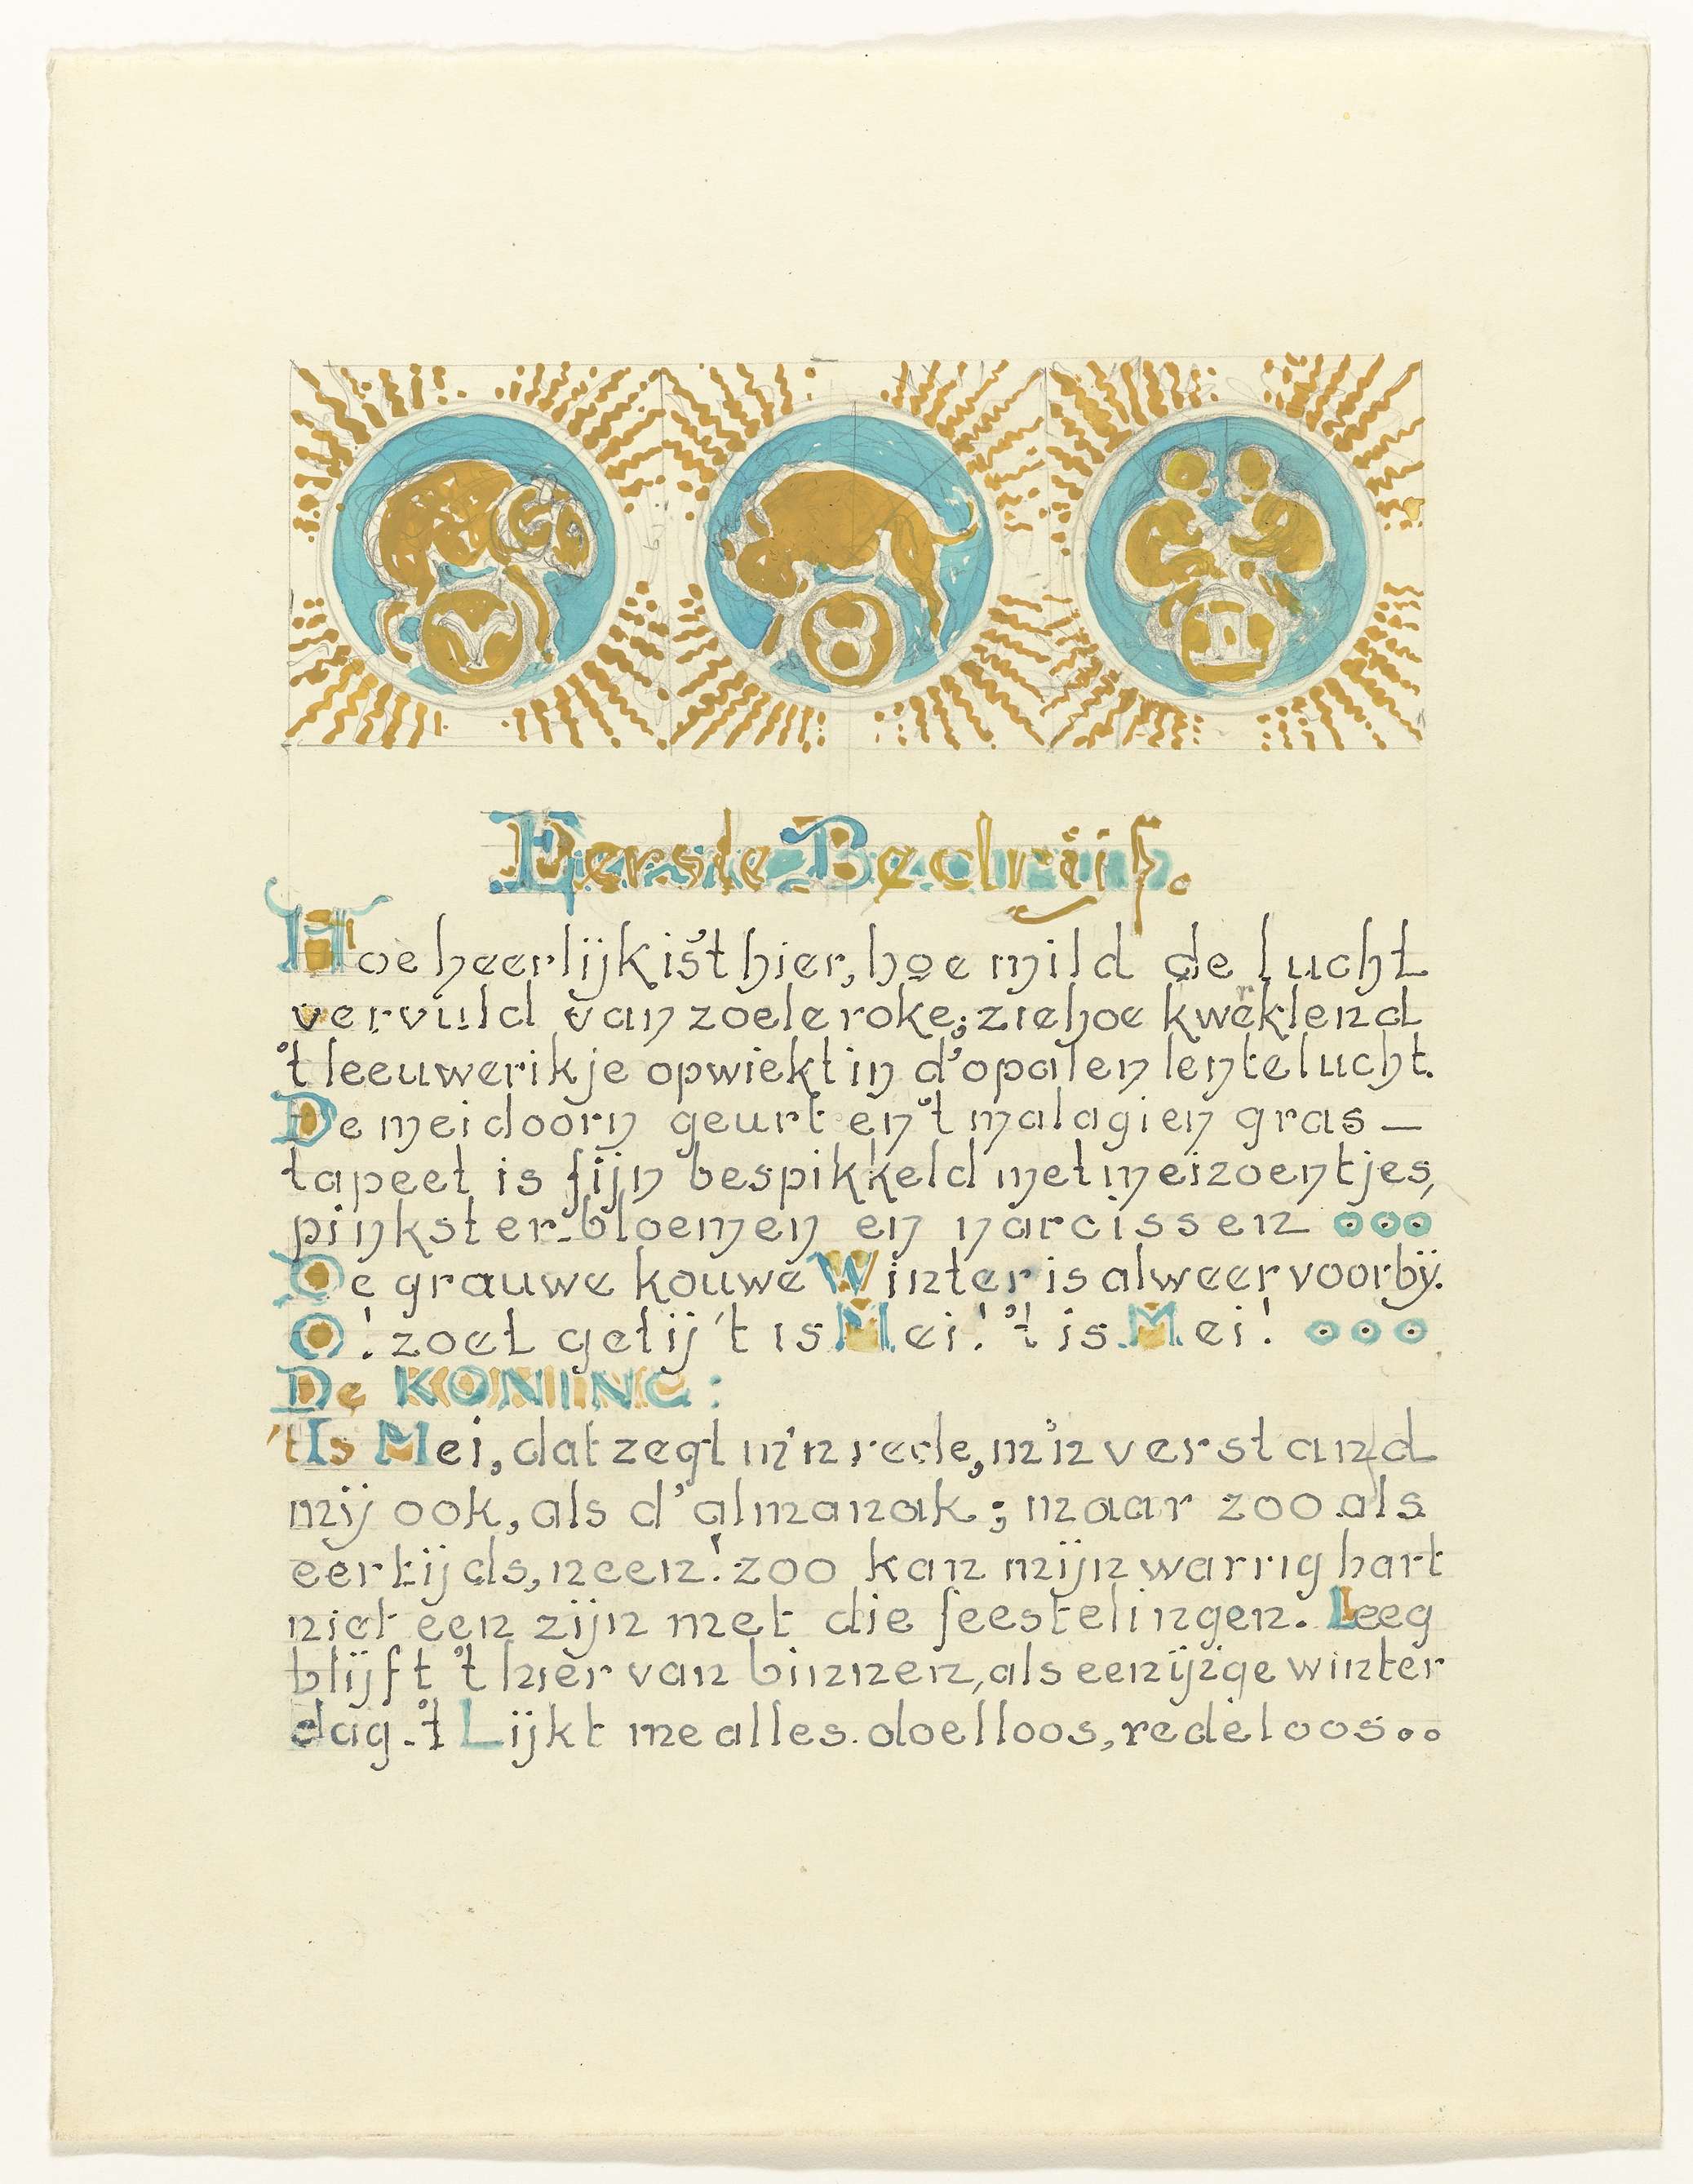 ♈ ♉ ♊
Eerste Bedrijf.
Hoe heerlijk is't hier, hoe mild de lucht
vervuld van zoele roke; zie hoe kwerklend
't leeuwerikje opwiekt in d'opalen lentelucht.
De meidoorn geurt en 't malagien gras—
tapeet is fijn bespikkeld met meizoentjes,
pinkster-bloemen en narcissen ooo
De grauwe kouwe Winter is alweer voorbij.
O! zoet getij 't is Mei! 't is Mei! ooo
De KONING:
't Is Mei, dat zegt m'n rede, m'n verstand
mij ook, als d'almanak; maar zoo als
eertijds, neen! zoo kan mijn warrig hart
niet een zijn met die feestelingen. Leeg
blijft 't hier van binnen, als een ijzige winter
dag. 't Lijkt me alles doelloos, redeloos oo